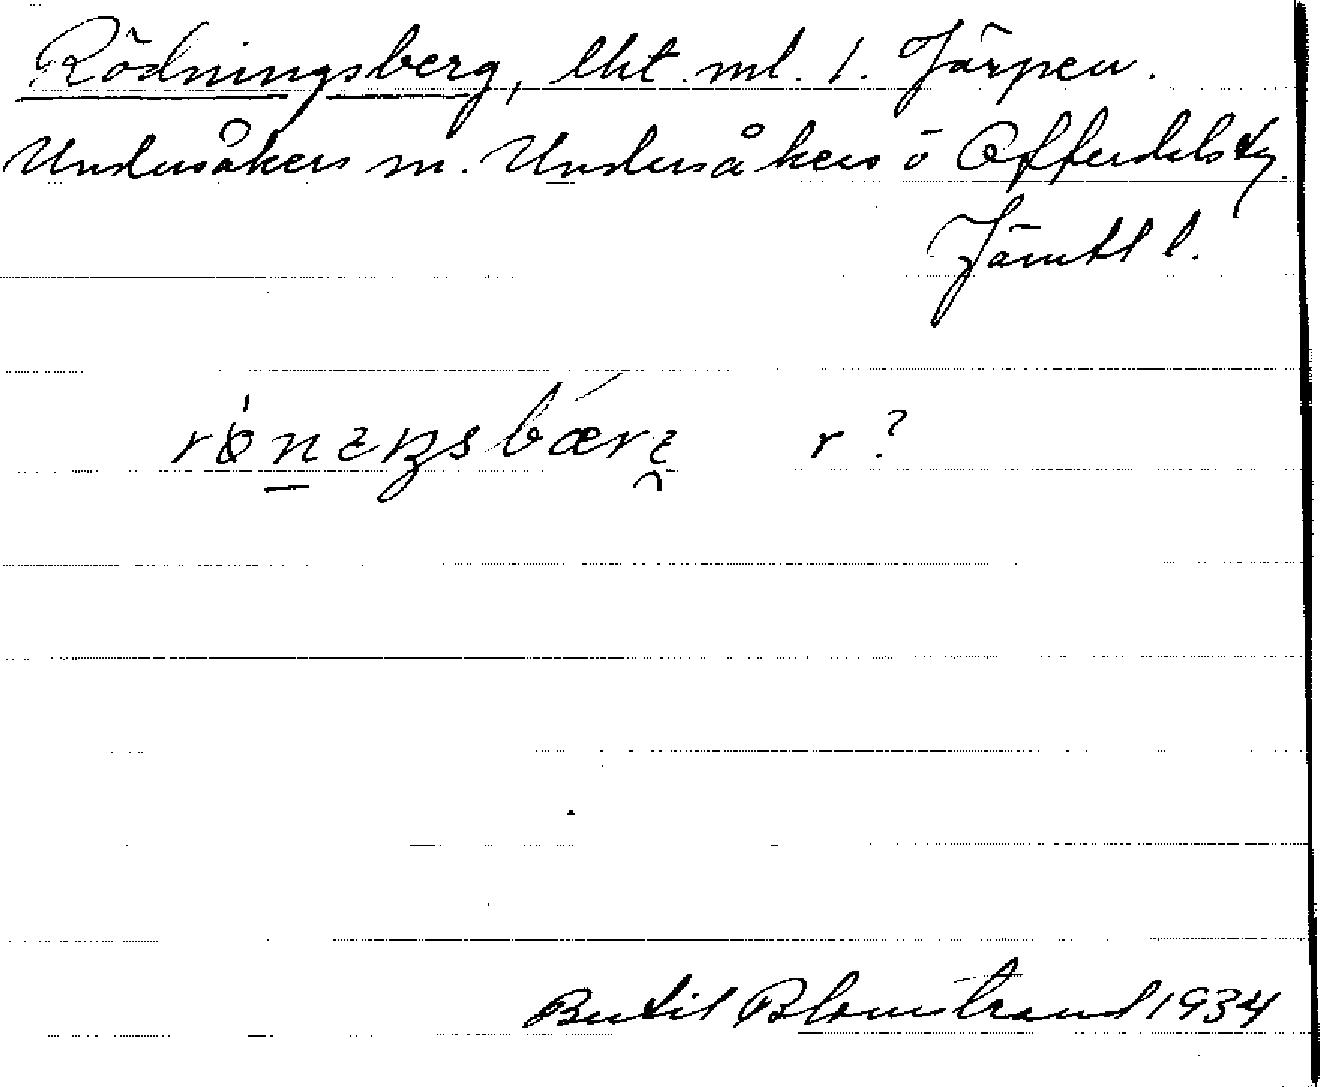 Rödningsberg, lht. ml. 1. Järpen.
Undersåkers sn. Undersåkers o Offerdals tg.
Jämtl l.
r ?
Bertil Blomstrand 1934